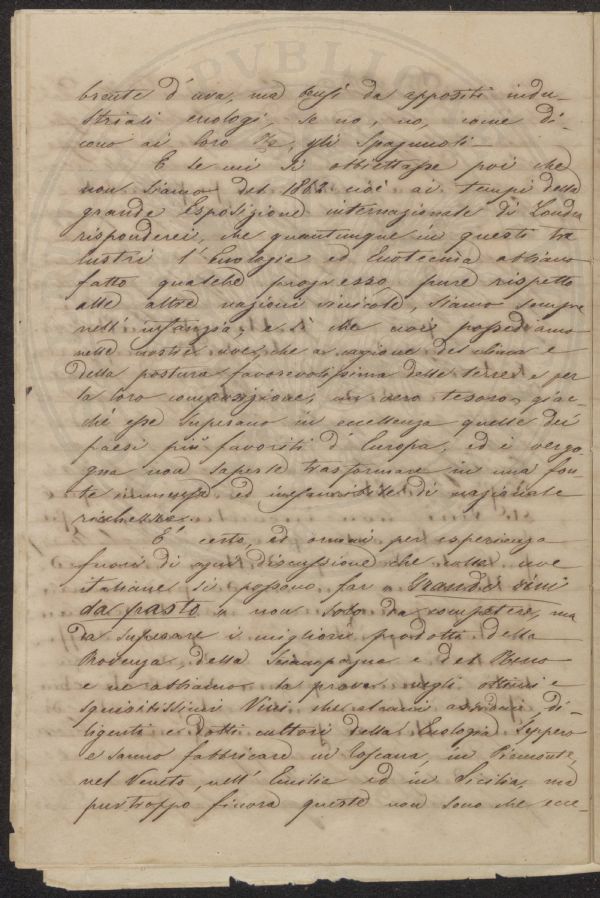 brente d'uva, ma bensì da appositi indu-
striali enologi, se no, no, come di-
cono ai loro Re, gli Spagnuoli.
E se mi si obbiettasse poi che
non siamo del 1862 cioè ai tempi della
grande Esposizione internazionale di Londra
risponderei, che quantunque in questi tre
lustri l'Enologia ed Enotecnia abbiano
fatto qualche progresso pure rispetto
alle altre nazioni vinicole, siamo sempre
nell'infanzia, e sì che noi possediamo
nelle nostre uve, che a cagione del clima e
della postura favorevolissima delle terre e per
la loro composizione, un vero tesoro, giac-
chè esse superano in eccellenza quelle dei
paesi più favoriti d'Europa, ed è vergo-
gna non saperle trasformare in una fon-
te immensa ed inesauribile di nazionale
ricchezza.
E' certo, ed ormai per esperienza
fuori di ogni discussione che colle uve
italiane si possono far Grandi vini
da pasto e non solo da competere, ma
da superare i migliori prodotti della
Provenza, della Sciampagna e del Reno
e ne abbiamo la prova negli ottimi e
squisitissimi Vini che alcuni assidui di-
ligenti e dotti cultori della Enologia seppero
e sanno fabbricare in Toscana, in Piemonte,
nel Veneto, nell'Emilia ed in Sicilia, ma
purtroppo finora queste non sono che ecce-